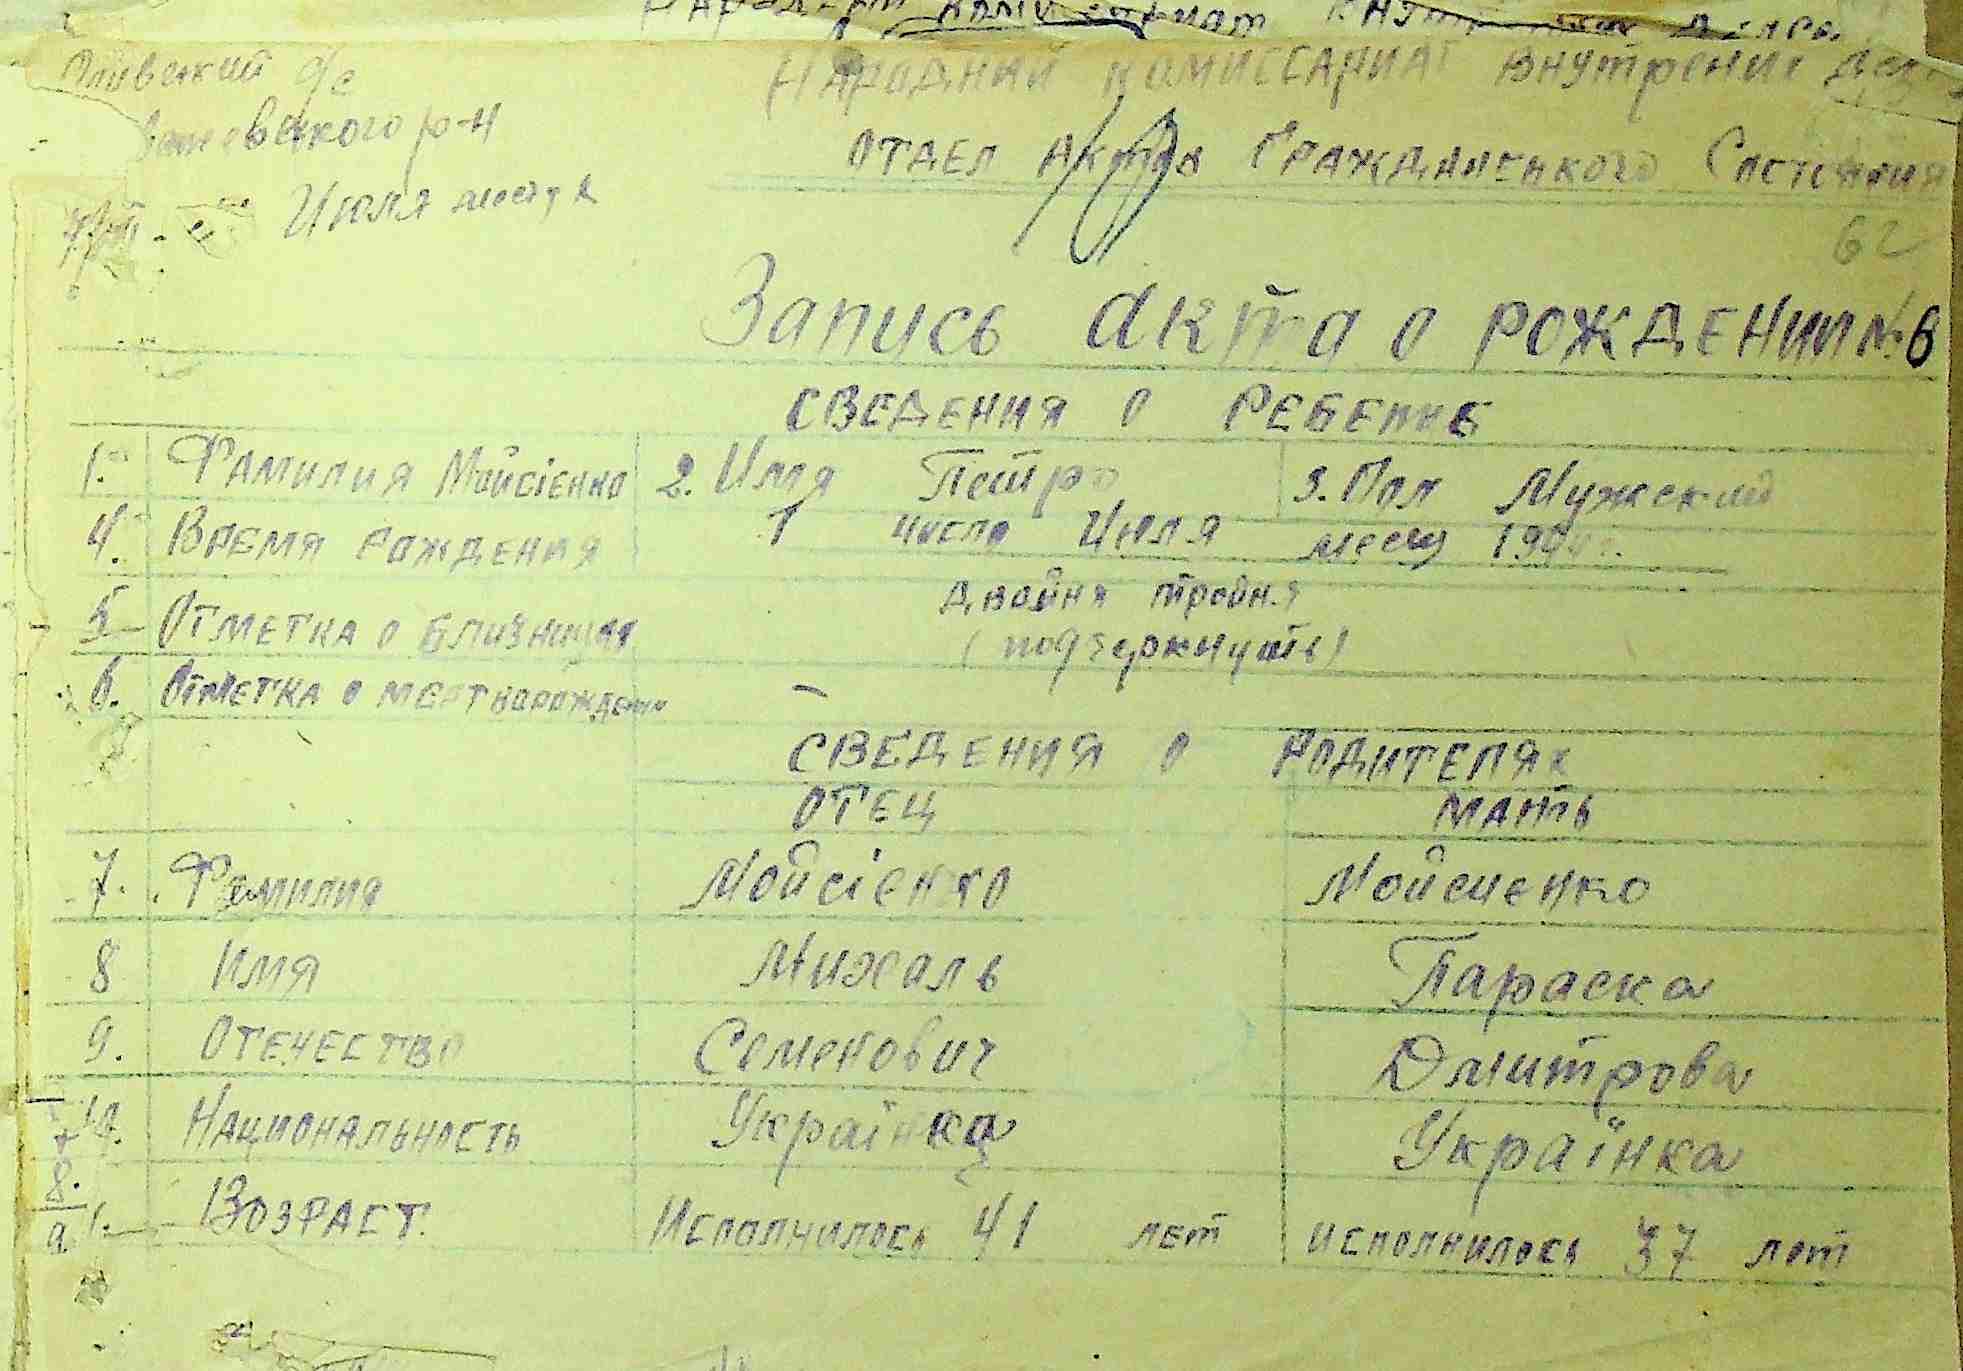 Народный комиссариат внутрених дел
с/с
р-н
Июля месяца
отдел Актов Гражданського Состояния
62
Запись акта о рождении № 6
СВЕДЕНИЯ О РЕБЕНКЕ
1. Фамилия Мойсієнко 2. Имя Петро 3. Пол Мужский
4. Время рождения 1 числа Июля месяц
5 Отметка о близнецах двойня тройня
(подчеркнуть)
6. Отметка о мертворождении –
СВЕДЕНИЯ О РОДИТЕЛЯХ
ОТЕЦ мать
7. Фамилия Мойсієнко Мойсиенко
8 Имя Михаль Параска
9. Отечество Семенович Дмитрова
10. Национальность Україньца Українка
Возраст. Исполнилось 41 лет исполнилось 37 лет